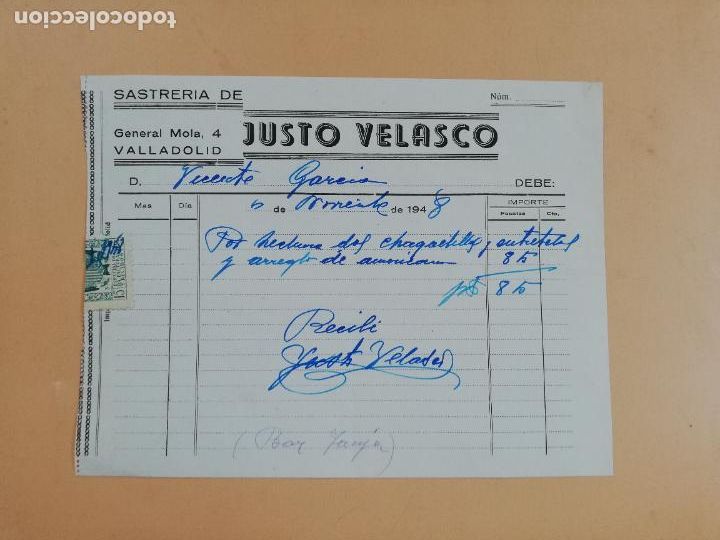 todocoleccion
SASTRERIA DE
Núm.
General Mola, 4
JUSTO VELASCO
VALLADOLID
D. Vicente Garcia DEBE:
Mes Día de de 1948 IMPORTE
Pesetas Cts.
Por hechura dos y
y arreglo de americana 85
pts 85
Recibi
Justo Velasco
(Bar )